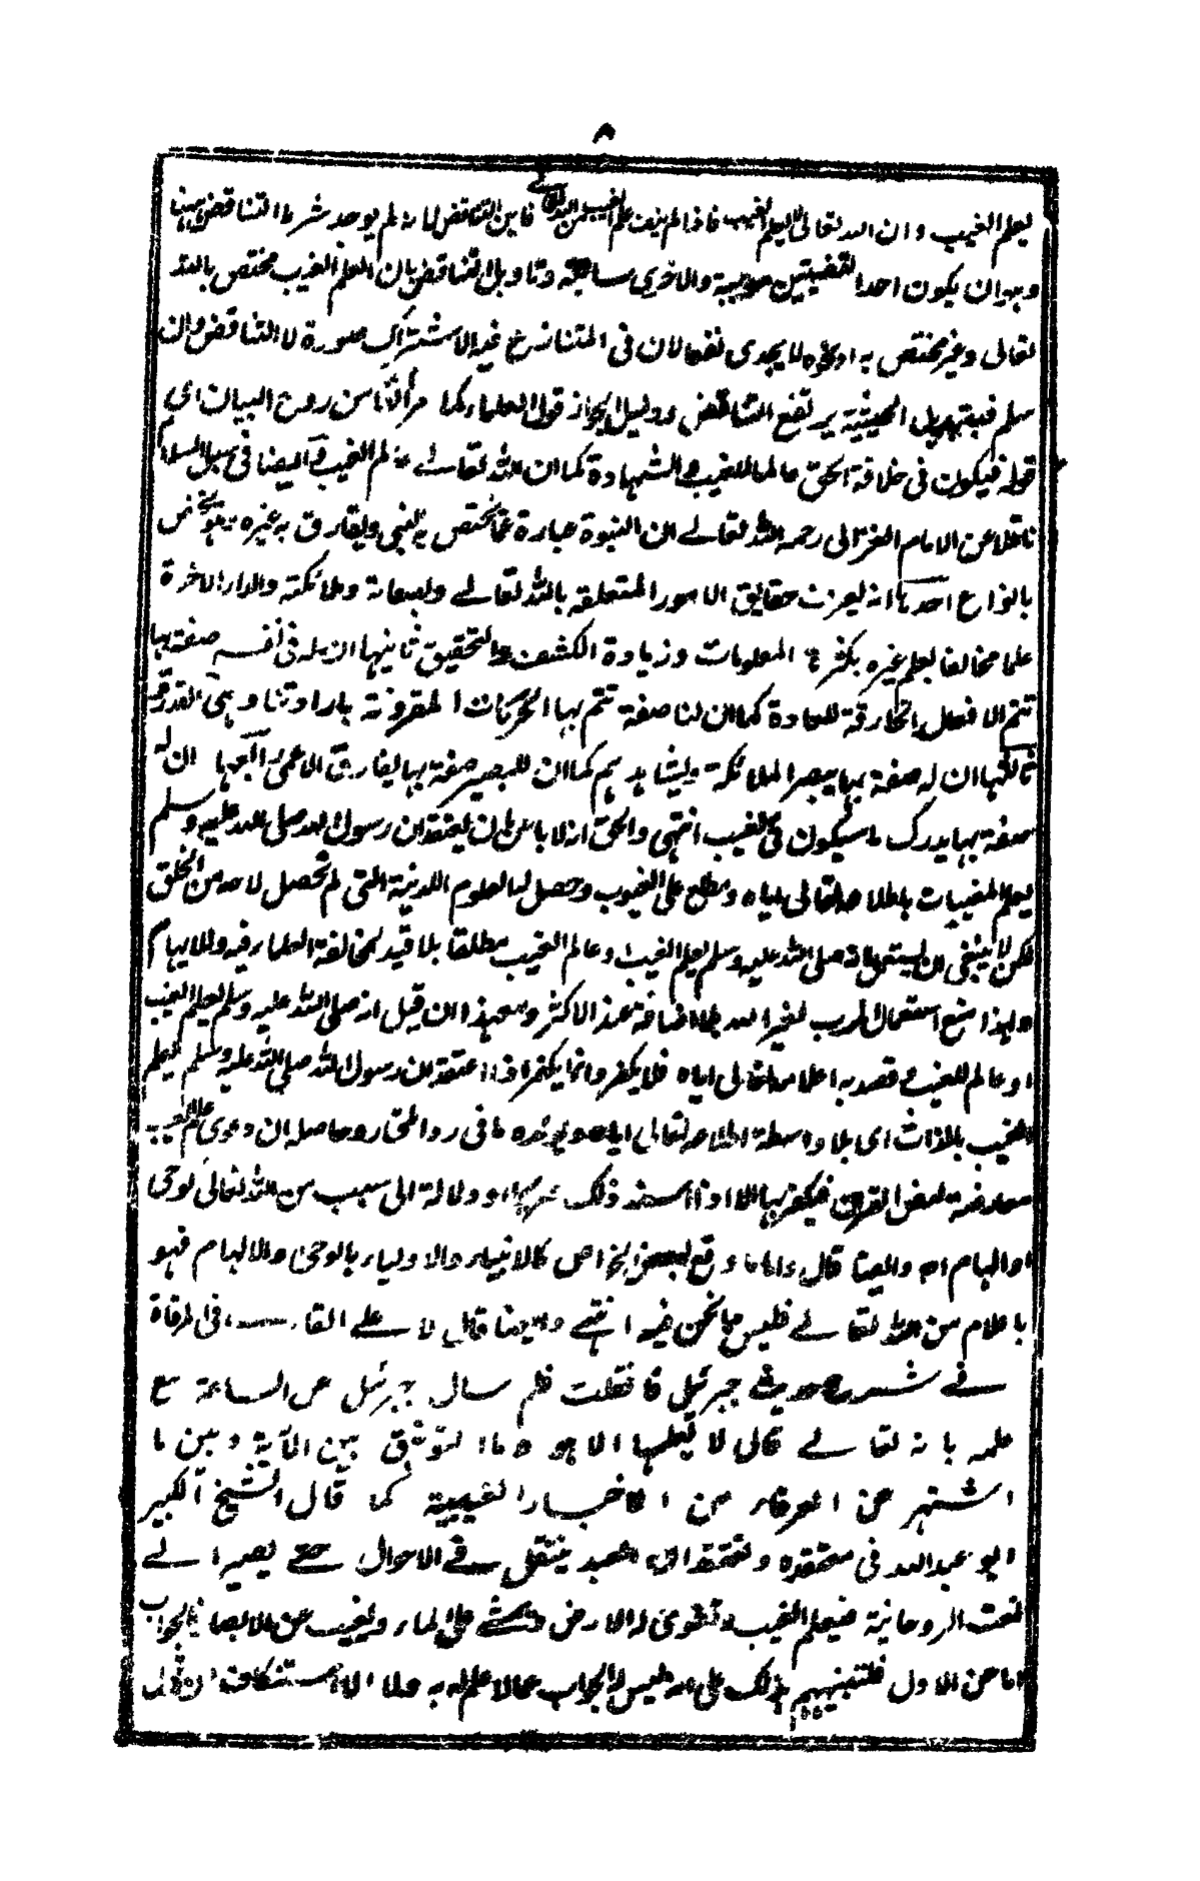 ٨
يعلم الغيب وان الله تعالى يعلم الغيب فاذا لم ينف علم الغيب من الله تعالى فاين التناقض لانه لم يوجد شرط التناقض ههنا
وهو ان يكون احدا القضيتين موجبة والاخرى سالبة وتاويل التناقض بان العلم الغيب مختص بالله
تعالى وغير مختص به او نحوه لا يجدى نفعا لان فى المتنازع فيه الاشتراك صورة لا التناقض وان
سلم فبتبديل الحيثية يرتفع التناقض ودليل الجواز قول العلماء كما مر آنفا من روح البيان اى
قوله فيكون فى خلافة الحق عالما للغيب والشهادة كما ان الله تعالى عالم الغيب وايضا فى سبل السلام
ناقلا عن الامام الغزالى رحمه الله تعالى ان النبوة عبارة عما يختص به النبى ويفارق به غيره وهو يختص
بانواع احدها انه يعرف حقايق الامور المتعلقه بالله تعالى وصفاته وملائكته والدار الاخرة
علما مخالفا لعلم غيره بكثرة المعلومات وزيادة الكشف والتحقيق ثانيها ان له فى نفسه صفة بها
تتم الافعال الخارقة للعادة كما ان لنا صفة تتم بها الحركات المقرونة بارادتنا وهى القدرة
ثالثها ان له صفة بها يبصر الملائكة ويشاهدهم كما ان للبصير صفة بها يفارق الاعمى رابعها ان له
صفة بها يدرك ما سيكون فى الغيب انتهى والحق انه لا باس بان يعتقد ان رسول الله صلى الله عليه وسلم
يعلم المغيبات باطلاعه تعالى اياه ومطلع على الغيوب وحصل له العلوم اللدنية التى لم تحصل لاحد من الخلق
لكن لا ينبغى ان يستعمل انه صلى الله عليه وسلم يعلم الغيب وعالم الغيب مطلقا بلا قيد لمخالفة العلماء فيه وللايهام
ولهذا منع استعمال الرب لغير الله بلا اضافة عند الاكثر ومع هذا ان قيل انه صلى الله عليه وسلم يعلم الغيب
او عالم للغيب وقصد به اعلامه تعالى اياه فلا يكفر وانما يكفر اذا اعتقد ان رسول الله صلى الله عليه وسلم يعلم
الغيب بالذات اى بلا واسطة اطلاعه تعالى اياه ويؤيده ما فى رد المحتار وحاصله ان دعوى علم الغيب
معارضة لنص القران فيكفر بها الا اذا اسند ذلك صريحا او دلالة الى سبب من الله تعالى كوحى
او الهام اه وايضا قال واما ما وقع لبعض الخواص كالانبياء والاولياء بالوحى والالهام فهو
باعلام من الله تعالى فليس مما نحن فيه انتهى وايضا قال ملا على القارى فى المرقاة
فى شرح حديث جبرئيل فان قلت فلم سال جبرئيل عن الساعة مع
علمه بانه تعالى قال لا يعلمها الا هو وما التوفيق بين الآية وبين ما
اشتهر عن العرفاء من الاخبار الغيبية كما قال الشيخ الكبير
ابو عبدالله فى معتقده ونعتقد ان العبد ينتقل فى الاحوال حتى يصير الى
نعت الروحانية فيعلم الغيب وتطوى له الارض ويمشى على الماء ويغيب عن الابصار الجواب
اما عن الاول فلتنبيههم بذلك على انه ليس له الجواب عما لا علم له به ولا الاستنكاف